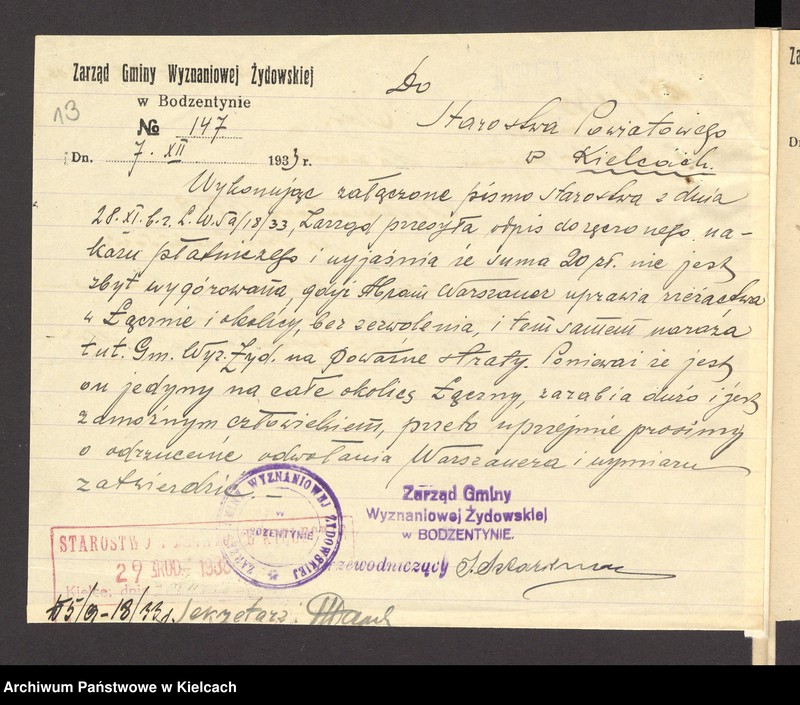 Zarząd Gminy Wyznaniowej Żydowskiej
w Bodzentynie
13
№ 147
Dn. 7. XII 1933 r.
Do
Starostwa Powiatowego
w Kielcach.
Wykonując załączone pismo starostwa z dnia
28.XI.b.r. L.W.5a/18/33, Zarząd przesyła odpis doręczonego na-
kazu płatniczego i wyjaśnia że suma 20 zł. nie jest
zbyt wygórowana, gdyż Abram Warszauer uprawia rzezactwa
w Łącznie i okolicy, bez zezwolenia, i tem samem naraża
tut. Gm. Wyz. Żyd. na poważne straty. Ponieważ że jest
on jedyny na całe okolicę Łączny, zarabia dużo i jest
zamożnym człowiekiem, przeto uprzejmie prosimy
o odrzucenie odwołania Warszauera i wymiaru
zatwierdzić. –
ZARZĄD GMINY WYZNANIOWEJ ŻYDOWSKIEJ
w
BODZENTYNIE
Zarząd Gminy
Wyznaniowej Żydowskiej
w BODZENTYNIE.
Przewodniczący
STAROSTWO
29 GRUD. 193
Kielce, dnia
5/9-18/33 r. Sekretarz:
Za
D
Archiwum Państwowe w Kielcach